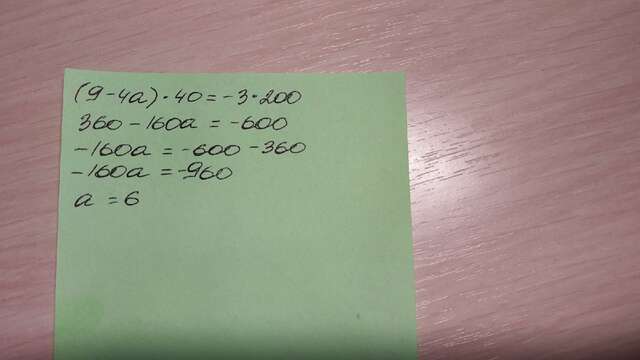 (9-4a)·40=-3·200
360-160a=-600
-160a=-600-360
-160a=-960
a=6